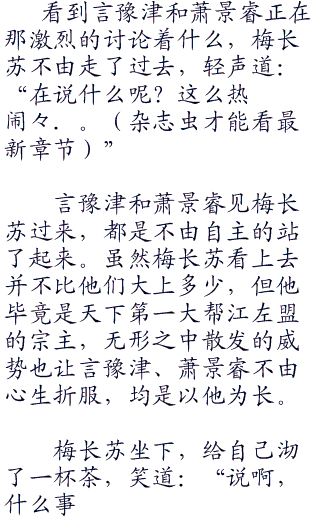 看到言豫津和萧景睿正在
那激烈的讨论着什么，梅长
苏不由走了过去，轻声道：
“在说什么呢？这么热
闹々．。（杂志虫才能看最
新章节）”
言豫津和萧景睿见梅长
苏过来，都是不由自主的站
了起来。虽然梅长苏看上去
并不比他们大上多少，但他
毕竟是天下第一大帮江左盟
的宗主，无形之中散发的威
势也让言豫津、萧景睿不由
心生折服，均是以他为长。
梅长苏坐下，给自己沏
了一杯茶，笑道：“说啊，
什么事